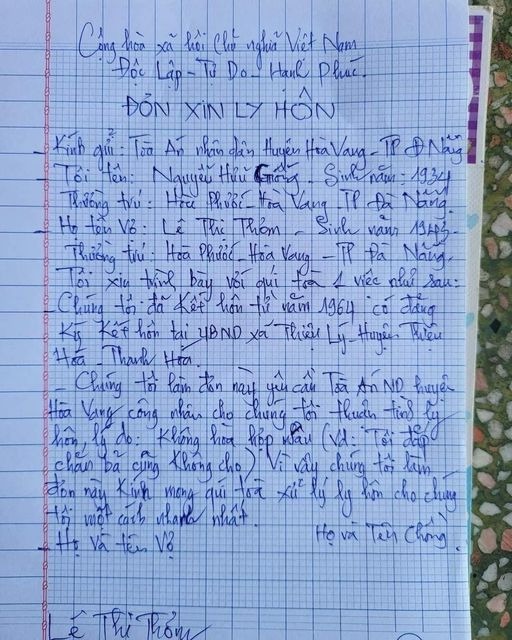 Cộng hòa xã hội Chủ nghĩa Việt Nam
Độc Lập - Tự Do - Hạnh Phúc.
ĐƠN XIN LY HÔN
- Kính gửi: Tòa Án nhân dân Huyện Hòa Vang - TP Đ Nẵng
- Tôi tên: Nguyễn Hữu Sinh năm: 1934
Thường trú: Hòa Phước - Hòa Vang TP Đà Nẵng.
- Họ tên Vợ: Lê Thị Thỏm - Sinh năm 1943.
Thường trú: Hòa Phước - Hòa Vang - TP Đà Nẵng.
Tôi xin trình bày với quí tòa 1 việc như sau:
- Chúng tôi đã Kết hôn từ năm 1964 có đăng
Ký Kết hôn tại UBND xã Thiệu Lý - Huyện Thiệu
Hóa - Thanh Hóa.
- Chúng tôi làm đơn này yêu cầu Tòa Án ND huyện
Hòa Vang công nhận cho chúng tôi thuận tình ly
hôn, lý do: Không hòa hợp nhau (Vd: Tôi đắp
chăn bả cũng Không cho) Vì vậy chúng tôi làm
đơn này Kính mong quí tòa xử lý ly hôn cho chúng
tôi một cách nhanh nhất.
Họ và Tên Chồng.
- Họ và tên Vợ
Lê Thị Thỏm